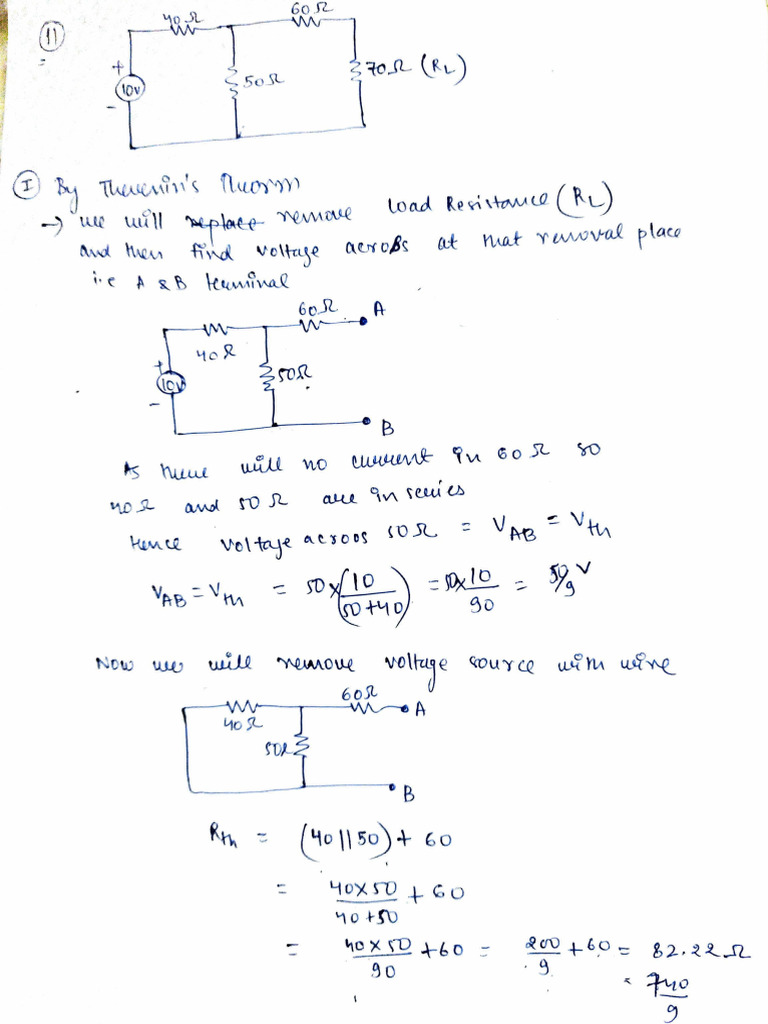 11
40Ω
60Ω
+
10v
-
50Ω
70Ω (RL)
I By Thevenin's Theorm
→ we will replace remove Load Resistance (RL)
and then find voltage across at that removal place
i.e A & B terminal
60Ω
A
40Ω
+
10v
-
50Ω
B
As there will no current in 60Ω so
40Ω and 50Ω are in series
Hence voltage acroos 50Ω = VAB = Vth
VAB = Vth = 50×(10/(50+40)) = 50×10/90 = 50/9 V
Now we will remove voltage source with wire
60Ω
A
40Ω
50Ω
B
Rth = (40||50) + 60
= 40×50/40+50 + 60
= 40×50/90 + 60 = 200/9 + 60 = 82.22Ω
= 740/9